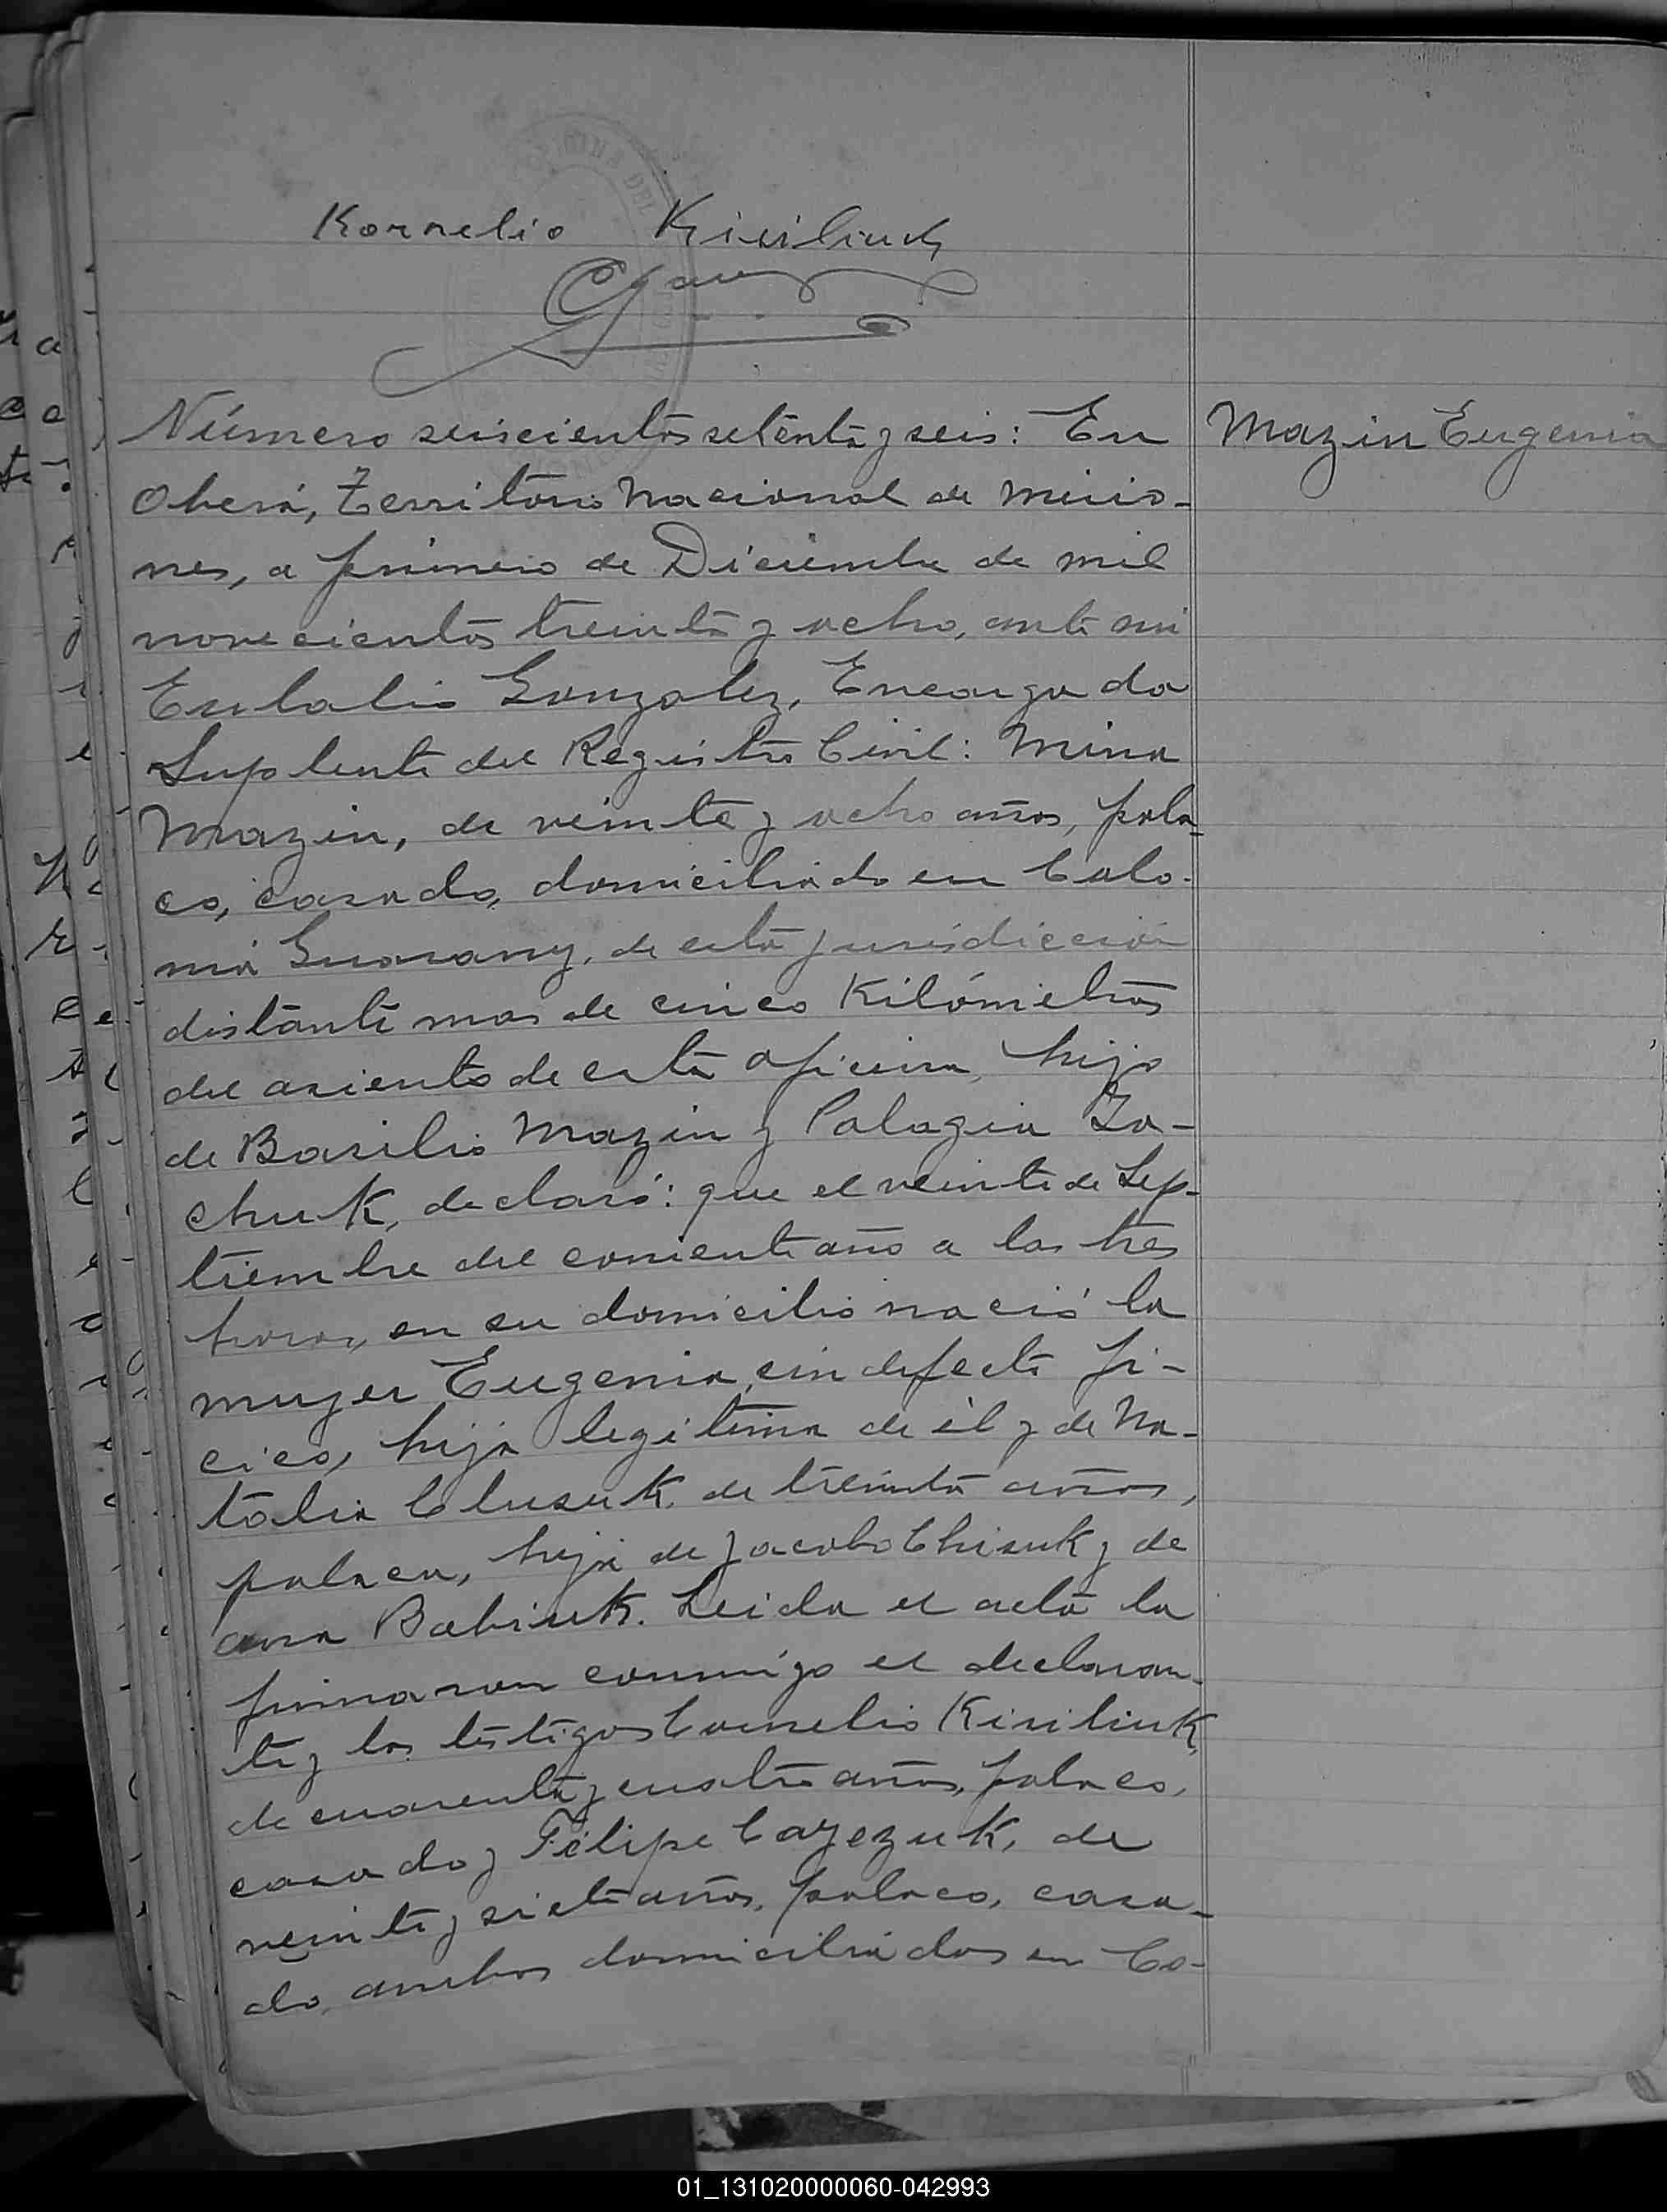 Kornelio Kisiliuck
Número seiscientos setenta y seis: En
Mazin Eugenia
Oberá, Territorio Nacional de Misio-
nes, a primero de Diciembre de mil
novecientos treinta y ocho, ante mi
Eulalio Gonzalez, Encargado
Suplente del Registro Civil: Mina
Mazin, de veinte y ocho años, pola-
co, casado, domiciliado en Colo-
nia Guarany, de esta jurisdiccion
distante mas de cinco Kilómetros
del asiento de esta oficina, hijo
de Basilio Mazin y Palagia Za-
chuk, declaró: que el veinte de Sep-
tiembre del corriente año a las tres
horas, en su domicilio nació la
mujer Eugenia, sin defecto fi-
cico, hija legitima de él y de Na-
talia Clusuk, de treinta años,
polaca, hija de Jacobo Chisuk y de
Ana Babiuk. Leida el acta la
firmaron conmigo el declaran-
te y los testigos Cornelio Kisiliuk,
de cuarenta y cuatro años, polaco,
casado y Félipe Cayezuk, de
veinte y siete años, polaco, casa-
do, ambos domiciliados en Co-
01_131020000060-042993